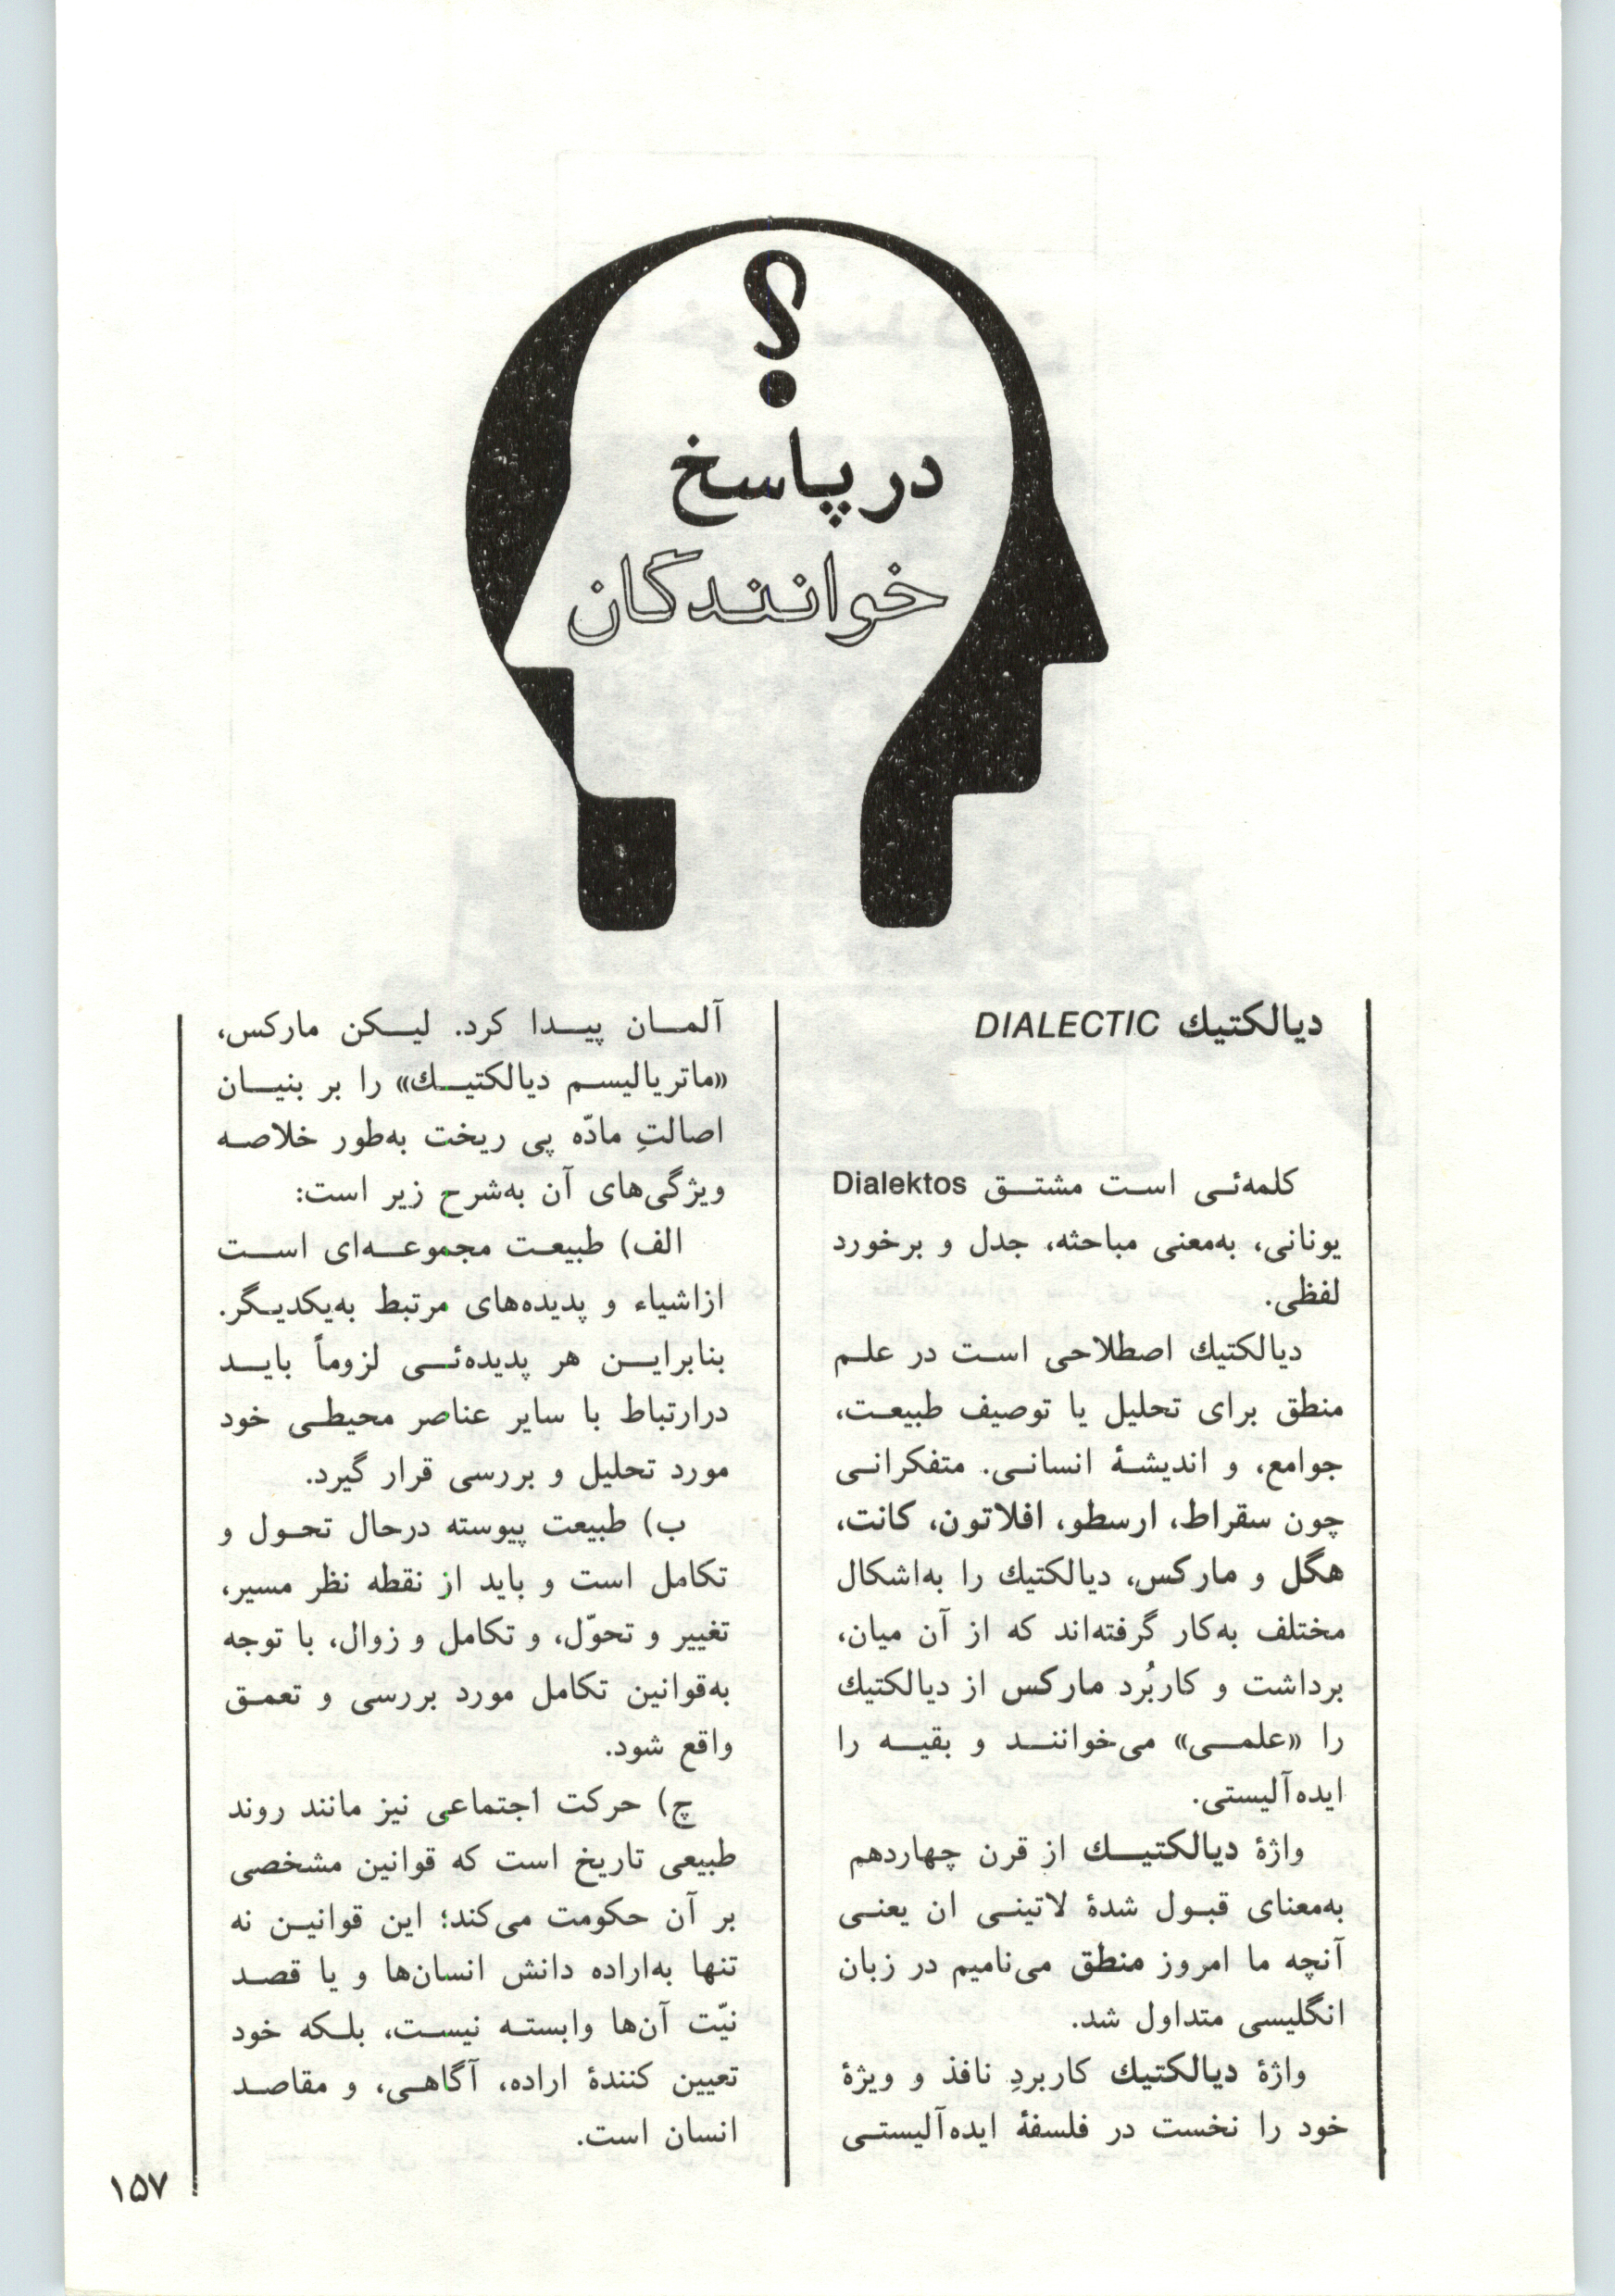 ؟
در پاسخ
خوانندگان
دیالکتیك DIALECTIC
کلمه‌ئی است مشتق Dialektos
یونانی، به‌معنی مباحثه، جدل و برخورد
لفظی.
دیالکتیك اصطلاحی است در علم
منطق برای تحلیل یا توصیف طبیعت،
جوامع، و اندیشهٔ انسانی. متفکرانی
چون سقراط، ارسطو، افلاتون، کانت،
هگل و مارکس، دیالکتیك را به‌اشکال
مختلف به‌کار گرفته‌اند که از آن میان،
برداشت و کاربُرد مارکس از دیالکتیك
را «علمی» می‌خوانند و بقیه را
ایده‌آلیستی.
واژهٔ دیالکتیك از قرن چهاردهم
به‌معنای قبول شدهٔ لاتینی ان یعنی
آنچه ما امروز منطق می‌نامیم در زبان
انگلیسی متداول شد.
واژهٔ دیالکتیك کاربردِ نافذ و ویژهٔ
خود را نخست در فلسفهٔ ایده‌آلیستی
آلمان پیدا کرد. لیکن مارکس،
«ماتریالیسم دیالکتیك» را بر بنیان
اصالتِ مادّه پی ریخت به‌طور خلاصه
ویژگی‌های آن به‌شرح زیر است:
الف) طبیعت مجموعه‌ای است
ازاشیاء و پدیده‌های مرتبط به‌یکدیگر.
بنابراین هر پدیده‌ئی لزوماً باید
درارتباط با سایر عناصر محیطی خود
مورد تحلیل و بررسی قرار گیرد.
ب) طبیعت پیوسته درحال تحول و
تکامل است و باید از نقطه نظر مسیر،
تغییر و تحوّل، و تکامل و زوال، با توجه
به‌قوانین تکامل مورد بررسی و تعمق
واقع شود.
چ) حرکت اجتماعی نیز مانند روند
طبیعی تاریخ است که قوانین مشخصی
بر آن حکومت می‌کند؛ این قوانین نه
تنها به‌اراده دانش انسان‌ها و یا قصد
نیّت آن‌ها وابسته نیست، بلکه خود
تعیین کنندهٔ اراده، آگاهی، و مقاصد
انسان است.
۱۵۷